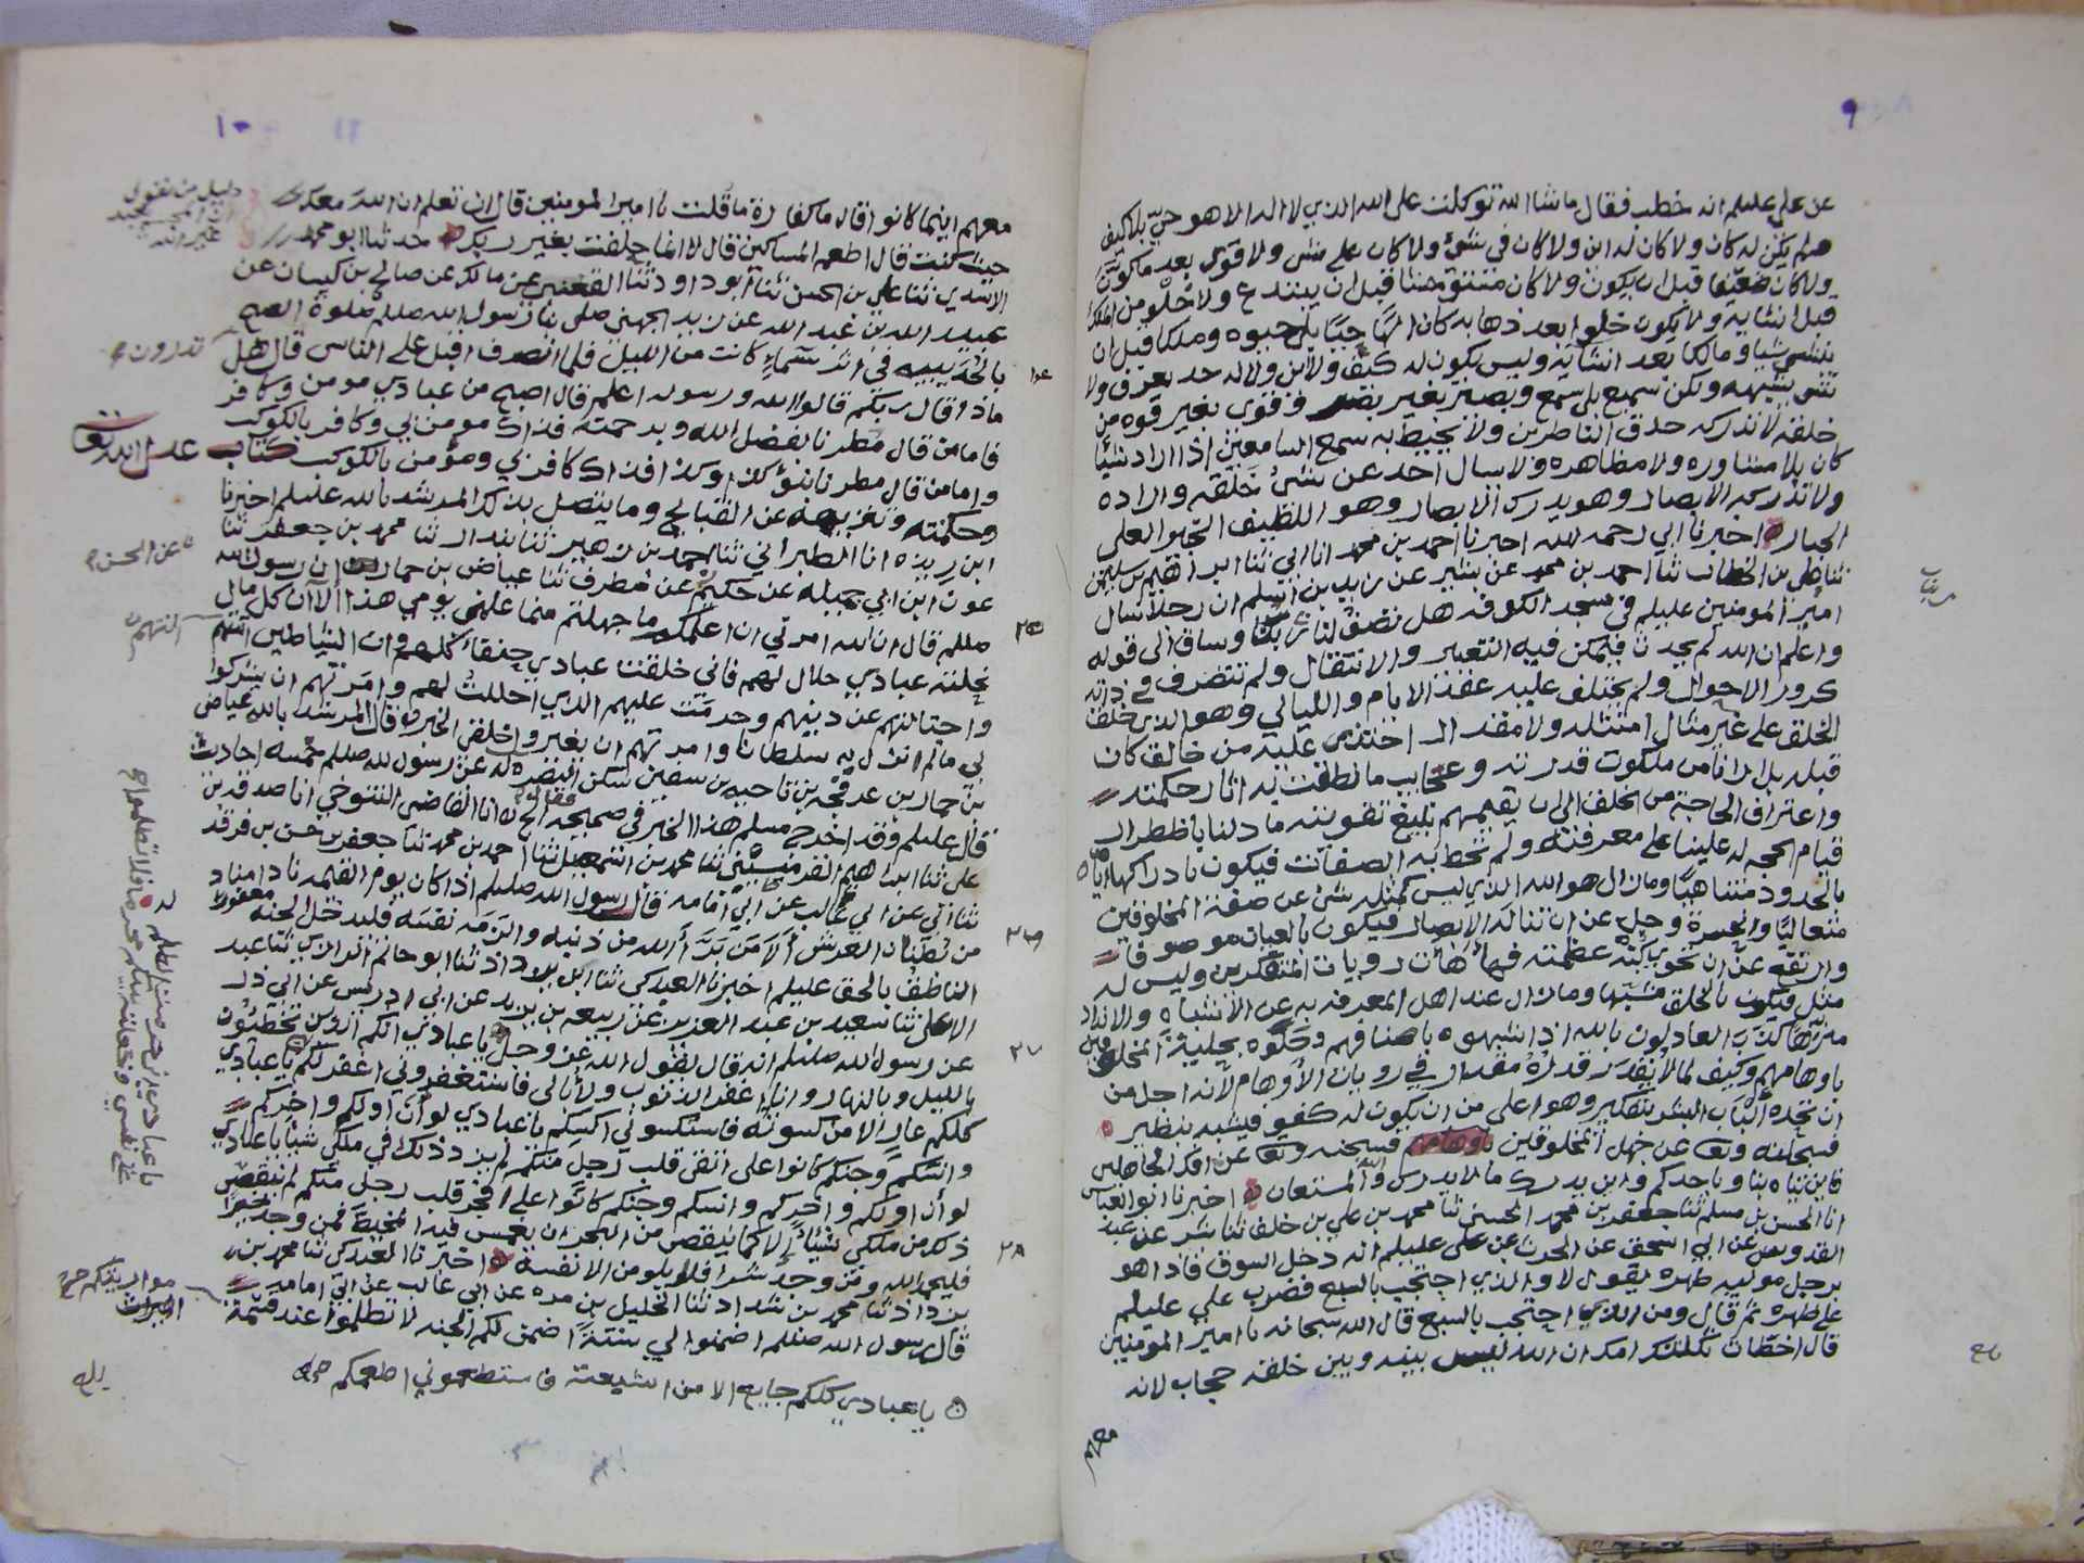 ٩
عن علي عليلم انه خطب فقال ما شا الله توكلت على الله الذي لا اله الا هو حي بلا كيف
ولم يكن له كان ولا كان له اين ولا كان في شي ولا كان على شي ولا قوي بعد ما كون
ولا كان ضعيفا قبل ان يكون ولا كان قبل ان يبتدع ولا خلوا من الملك
قبل انشايه ولا يكون خلوا بعد ذهابه كان الها حيا بلا حيوه وملكا قبل ان
ينشي شيا ومالكا بعد انشايه وليس يكون له كيف ولا اين ولا له حد يعرف ولا
شي يشبهه ولكن سميع بلا سمع وبصير بغير بصر وقوي بغير قوه من
خلقه لا تدركه حدق الناظرين ولا يحيط به سمع السامعين اذا اراد شيا
كان بلا مشاوره ولا مظاهره ولا يسال احد عن شي خلقه واراده
ولا تدركه الابصار وهو يدرك الابصار وهو اللطيف الخبير العلي
الجبار اخبرنا ابي رحمه الله اخبرنا احمد بن محمد انا ابي ثنا ابراهيم بن سليمن
ثنا علي بن الخطاب ثنا احمد بن محمد عن بشير عن زيد بن اسلم ان رجلا سال
امير المومنين عليلم في مسجد الكوفه هل تصف لنا ربك وساق الى قوله
واعلم ان الله لم يحدث فيمكن فيه التغير والانتقال ولم تتصرف في ذاته
كرور الاحوال ولم يختلف عليه عقد الايام والليالي وهو الذي خلق
الخلق على غير مثال امتثله ولا مقدار احتذى عليه من خالق كان
قبله بل ارانا من ملكوت قدرته وعجايب ما نطقت به اثار حكمته
واعتراف الحاجة من الخلق الى ان يقيمهم بلبغ تقويته ما دلنا باضطرار
قيام الحجه له علينا على معرفته ولم تحط به الصفات فيكون بادراكها اياه
بالحدود متناهيا وما زال هو الله الذي ليس كمثله شي عن صفة المخلوقين
متعاليا وانحسرة وجل عن ان تناله الابصار فيكون بالعيان موصوفا
وارتفع عن ان تحوي كنه عظمته رويات المتفكرين وليس له
مثل فيكون بالخلق مشبها وما زال عند اهل المعرفه به عن الاشباه والانداد
منزها كذب العادلون بالله اذ شبهوه باصنافهم وحلوه بحلية المخلوقين
باوهامهم وكيف لما لا يقدر قدره مقدار في رويات الاوهام لانه اجل من
ان تحده الباب البشر بتفكير وهو اعلى من ان يكون له كفو فيشبه بنظير
فسبحانه وتعا عن جهل المخلوقين فسبحنه وتعا عن افك الجاهلين
فاين يتاه بنا وباحدكم واين يدرك ما لا يدرك والله المستعان اخبرنا ابو العباس
انا الحسن بن مسلم ثنا جعفر بن محمد الحسني ثنا محمد بن علي بن خلف ثنا عن عبد
القدوس عن ابي اسحق عن الحرث عن علي عليلم انه دخل السوق فاذا هو
برجل موليه ظهره يقول لا والذي احتجب بالسبع فضرب علي عليلم
على ظهره ثم قال ومن الذي احتجب بالسبع قال الله سبحانه يا امير المومنين
قال اخطات ثكلتك امك ان الله ليس بينه وبين خلقه حجاب لانه
معهم
١٠
معهم اينما كانوا قال ما كفارة ما قلت يا امير المومنين قال ان تعلم ان الله معك
حيث كنت قال اطعم المساكين قال لا انما حلفت بغير ربك حدثنا ابو محمد
الاسدي ثنا علي بن الحسن ثنا ابو داود ثنا القعنبي عن مالك عن صالح بن كيسان عن
عبيد الله بن عبد الله عن زيد الجهني صلى بنا رسول الله صللم صلوة الصبح
بالحديبيه في اثر سماء كانت من الليل فلما انصرف اقبل على الناس قال هل
تدرون
ماذا قال ربكم قالوا الله ورسوله اعلم قال اصبح من عبادي مومن وكافر
فاما من قال مطرنا بفضل الله وبرحمته فذاك مومن بي وكافر بالكوكب
واما من قال مطرنا بنؤ كذا وكذا فذاك كافر بي ومؤمن بالكوكب كتاب عدل الله تعا
وحكمته وتنزيهه عن القبايح وما يتصل بذلك المرشد بالله عليلم اخبرنا
ابن ريذه انا الطبراني ثنا احمد بن زهير ثنا بندار ثنا محمد بن جعفر ثنا
عون ابن ابي جميله عن حكيم عن مطرف ثنا عياض بن حمار ان رسول الله
عن الحسن
صللم قال ان الله امرني ان اعلمكم ما جهلتم مما علمني يومي هذا الا ان كل مال
نحلته عبادي حلال لهم فاني خلقت عبادي حنفاء كلهم وان الشياطين اتتهم
واجتالتهم عن دينهم وحرمت عليهم الذي احللت لهم وامرتهم ان يشركوا
بي ما لم انزل به سلطانا وامرتهم ان يغيروا خلقي الخبر قال المرشد بالله عياض
بن حمار بن عرفجه بن ناجيه بن سفين سكن البصره له عن رسول الله صللم خمسه احاديث
قال عليلم وقد اخرج مسلم هذا الخبر في صحيحه انا القاضي التنوخي انا صدقه بن
علي ثنا ابراهيم ثنا محمد بن اسمعيل ثنا احمد بن محمد ثنا جعفر بن حسن بن فرقد
ثنا ابي عن ابي غالب عن ابي امامه قال رسول الله صللم اذا كان يوم القيمه نادا مناد
من بطنان العرش الا من برا الله من ذنبه والزمه نفسه فليدخل الجنه مغفورا له
الناطق بالحق عليلم اخبرنا العبدكي ثنا ابن بلاد اذ ثنا ابو حاتم الرازي ثنا عبد
الاعلى ثنا سعيد بن عبد العزيز عن ربيعه بن يزيد عن ابي ادريس عن ابي ذر
عن رسول الله صللم انه قال يقول الله عز وجل يا عبادي انكم الذين تخطئون
بالليل وبالنهار وانا اغفر الذنوب ولا ابالي فاستغفروني اغفر لكم يا عبادي
كلكم عار الا من كسوته فاستكسوني اكسكم يا عبادي لو ان اولكم واخركم
وانسكم وجنكم كانوا على اتقى قلب رجل منكم لم يزد ذلك في ملكي شيا يا عبادي
لو ان اولكم واخركم وانسكم وجنكم كانوا على افجر قلب رجل منكم لم ينقص
ذلك من ملكي شيئا الا كما ينقص من البحر ان يغمس فيه المخيط فمن وجد خيرا
فليحمد الله ومن وجد شرا فلا يلومن الا نفسه اخبرنا العبدكي ثنا محمد بن
يزداد ثنا محمد بن شداد ثنا الخليل بن مره عن ابي غالب عن ابي امامه
قال رسول الله صللم اضمنوا لي ستة اضمن لكم الجنه لا تظلموا عند قسمة
مواريثكم
يا عبادي كلكم جايع الا من اشبعته فاستطعموني اطعمكم
يا عبادي اني حرمت الظلم
على نفسي وجعلته بينكم محرما فلا تظلموا